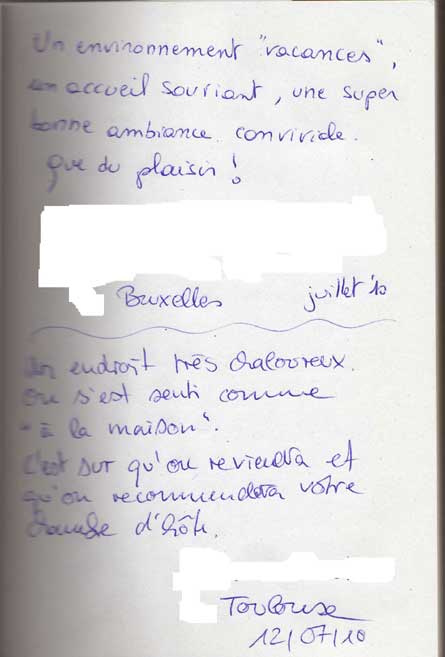 Un environnement "vacances",
un accueil souriant, une super
bonne ambiance conviviale.
que du plaisir !
Bruxelles juillet '10
Un endroit très chaloureux.
On s'est senti comme
"à la maison".
C'est sur qu'on reviendra et
qu'on recommendera votre
chambre d'hôte.
Toulouse
12/07/10